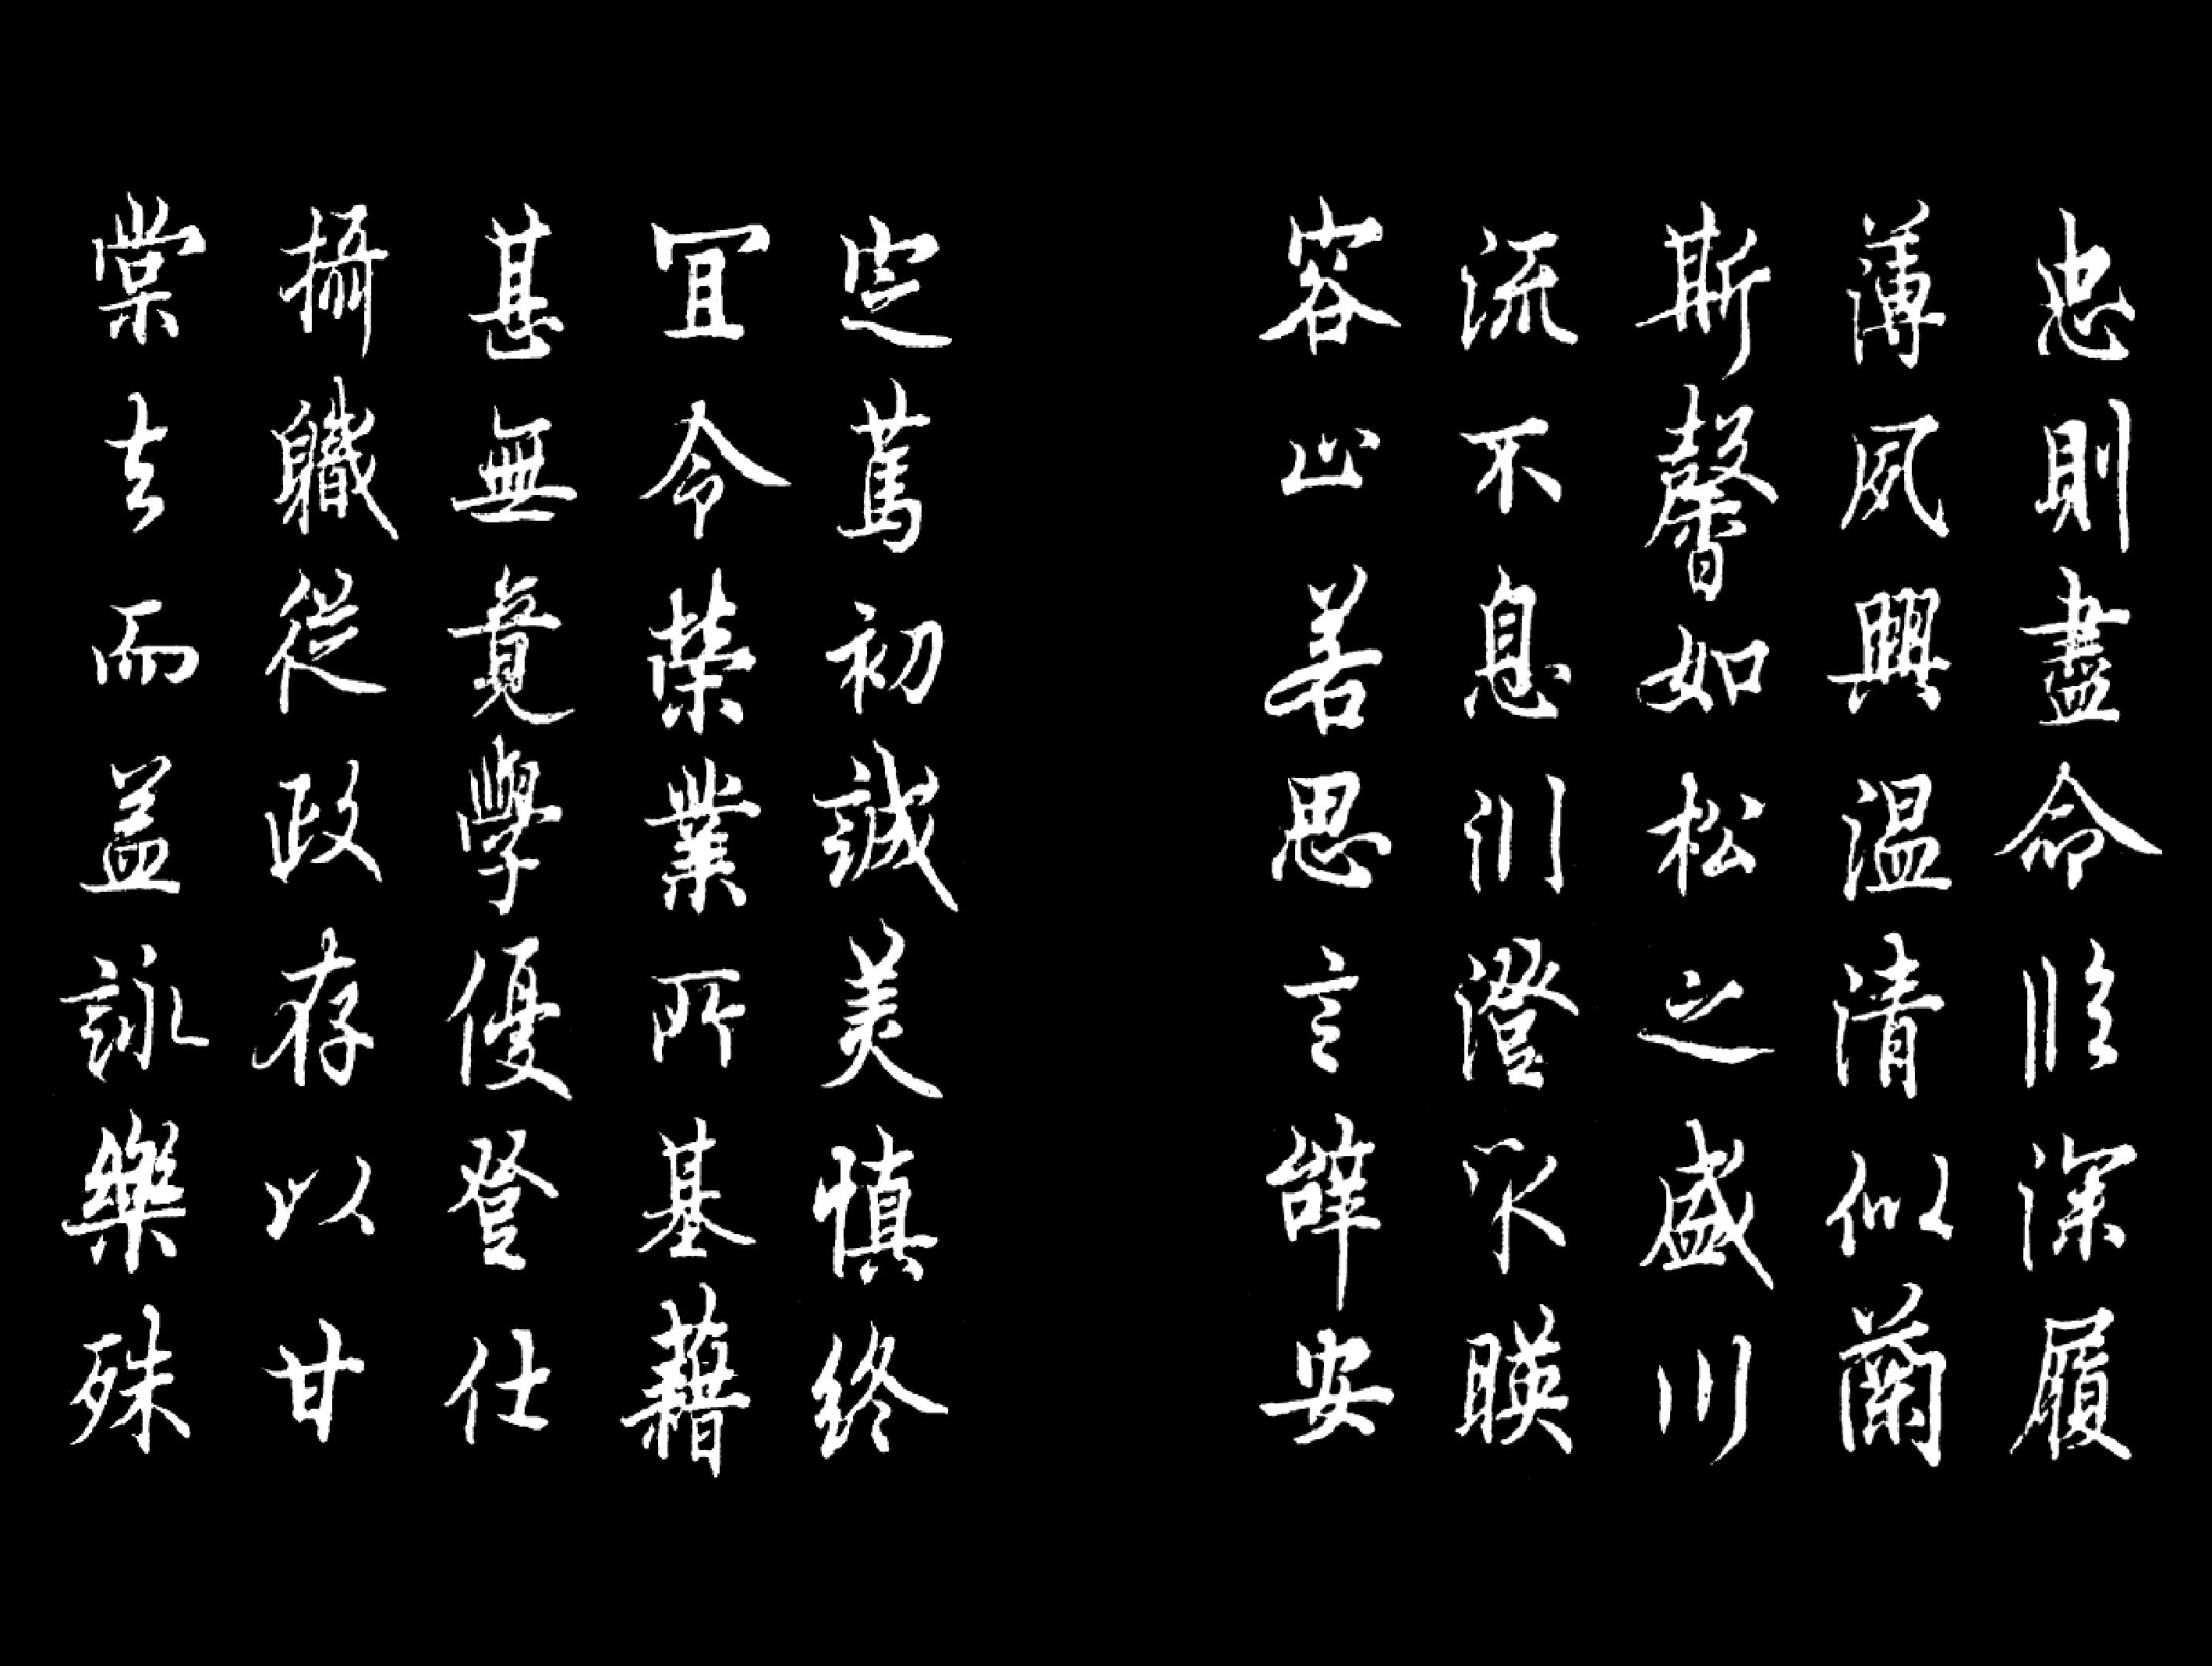 忠則盡命臨深履
薄夙興溫清似蘭
斯馨如松之盛川
流不息川澄取暎
容止若思言辭安
定篤初誠美慎終
冝令榮業所基藉
甚無竟學優登仕
攝職從政存以甘
棠去而益詠樂殊